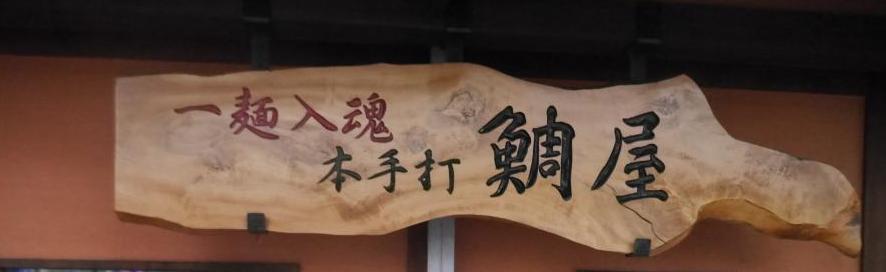 一麺入魂
本手打 鯛屋